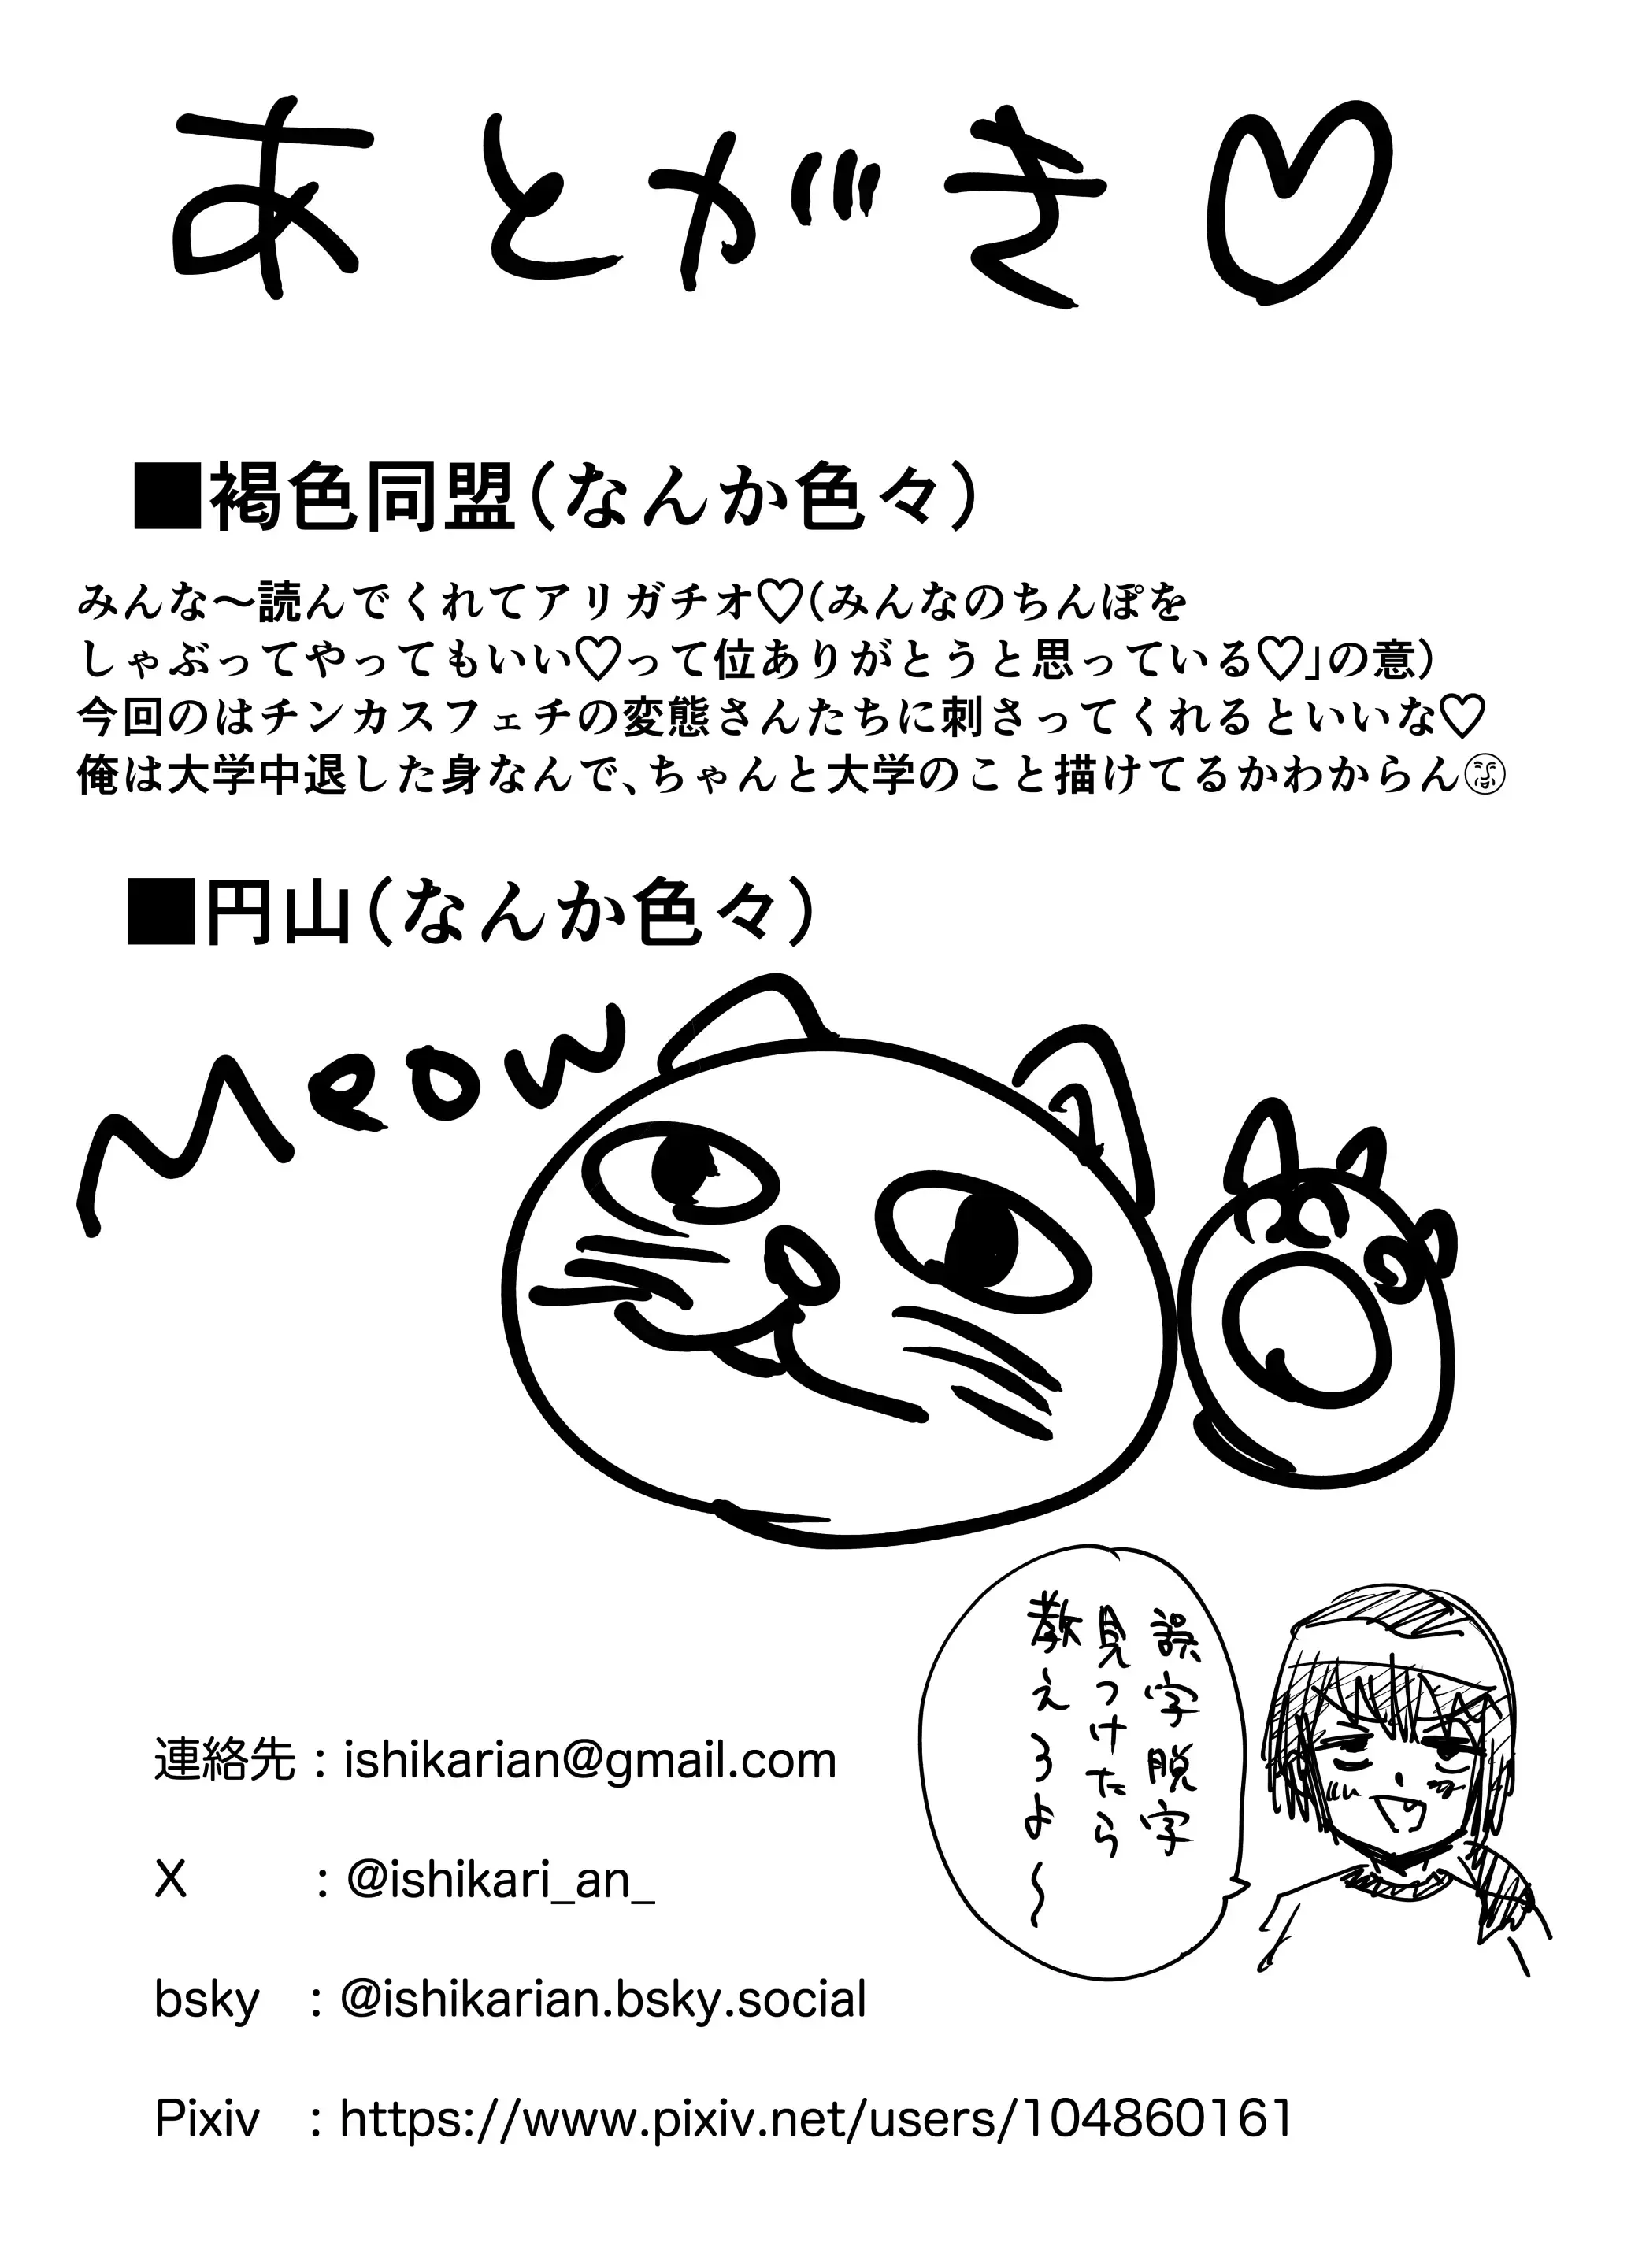 あとがき♡
■褐色同盟（なんか色々）
みんな～読んでくれてアリガチオ♡（みんなのちんぽを
しゃぶってやってもいい♡って位ありがとうと思っている♡」の意）
今回のはチンカスフェチの変態さんたちに刺さってくれるといいな♡
俺は大学中退した身なんで、ちゃんと大学のこと描けてるかわからん
■円山（なんか色々）
Meow
誤字脱字
見つけたら
教えろよ～
連絡先：ishikarian@gmail.com
X：@ishikari_an_
bsky：@ishikarian.bsky.social
Pixiv：https://www.pixiv.net/users/104860161